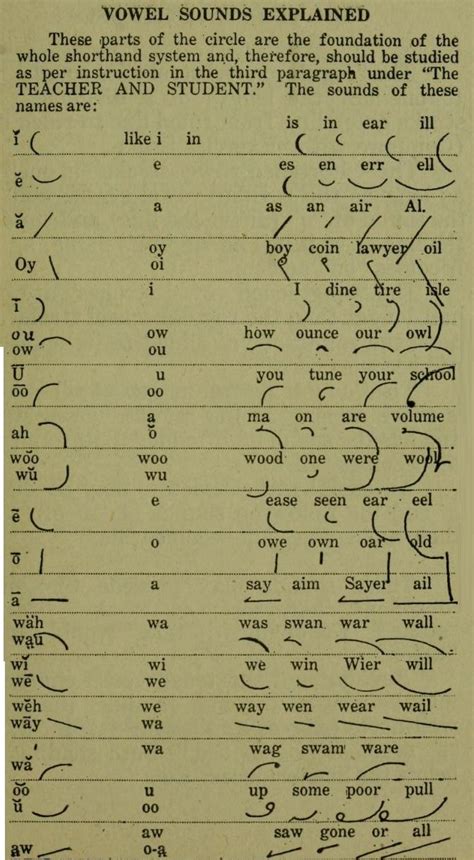 VOWEL SOUNDS EXPLAINED
These parts of the circle are the foundation of the
whole shorthand system and, therefore, should be studied
as per instruction in the third paragraph under "The
TEACHER AND STUDENT." The sounds of these
names are:
is in ear ill
ĭ like i in
e es en err ell
ĕ
a as an air Al.
ă
oy boy coin lawyer oil
Oy oi
i I dine tire isle
ī
ou ow how ounce our owl
ow ou
Ū u you tune your school
o͞o oo
a̤ ma on are volume
ah ŏ
wo͝o woo wood one were wool
wŭ wu
e ease seen ear eel
ē
o owe own oar old
ō
a say aim Sayer ail
ā
wäh wa was swan war wall.
wa̤u
wĭ wi we win Wier will
wē we
wĕh we way wen wear wail
wāy wa
wa wag swam ware
wă
o͝o u up some poor pull
ŭ oo
aw saw gone or all
a̤w o-a̤